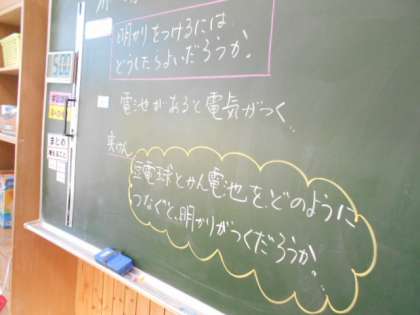 明かりをつけるには
どうしたらよいだろうか。
電池があると電気がつく。
豆電球とかん電池を、どのように
つなぐと、明かりがつくだろうか。
まとめ